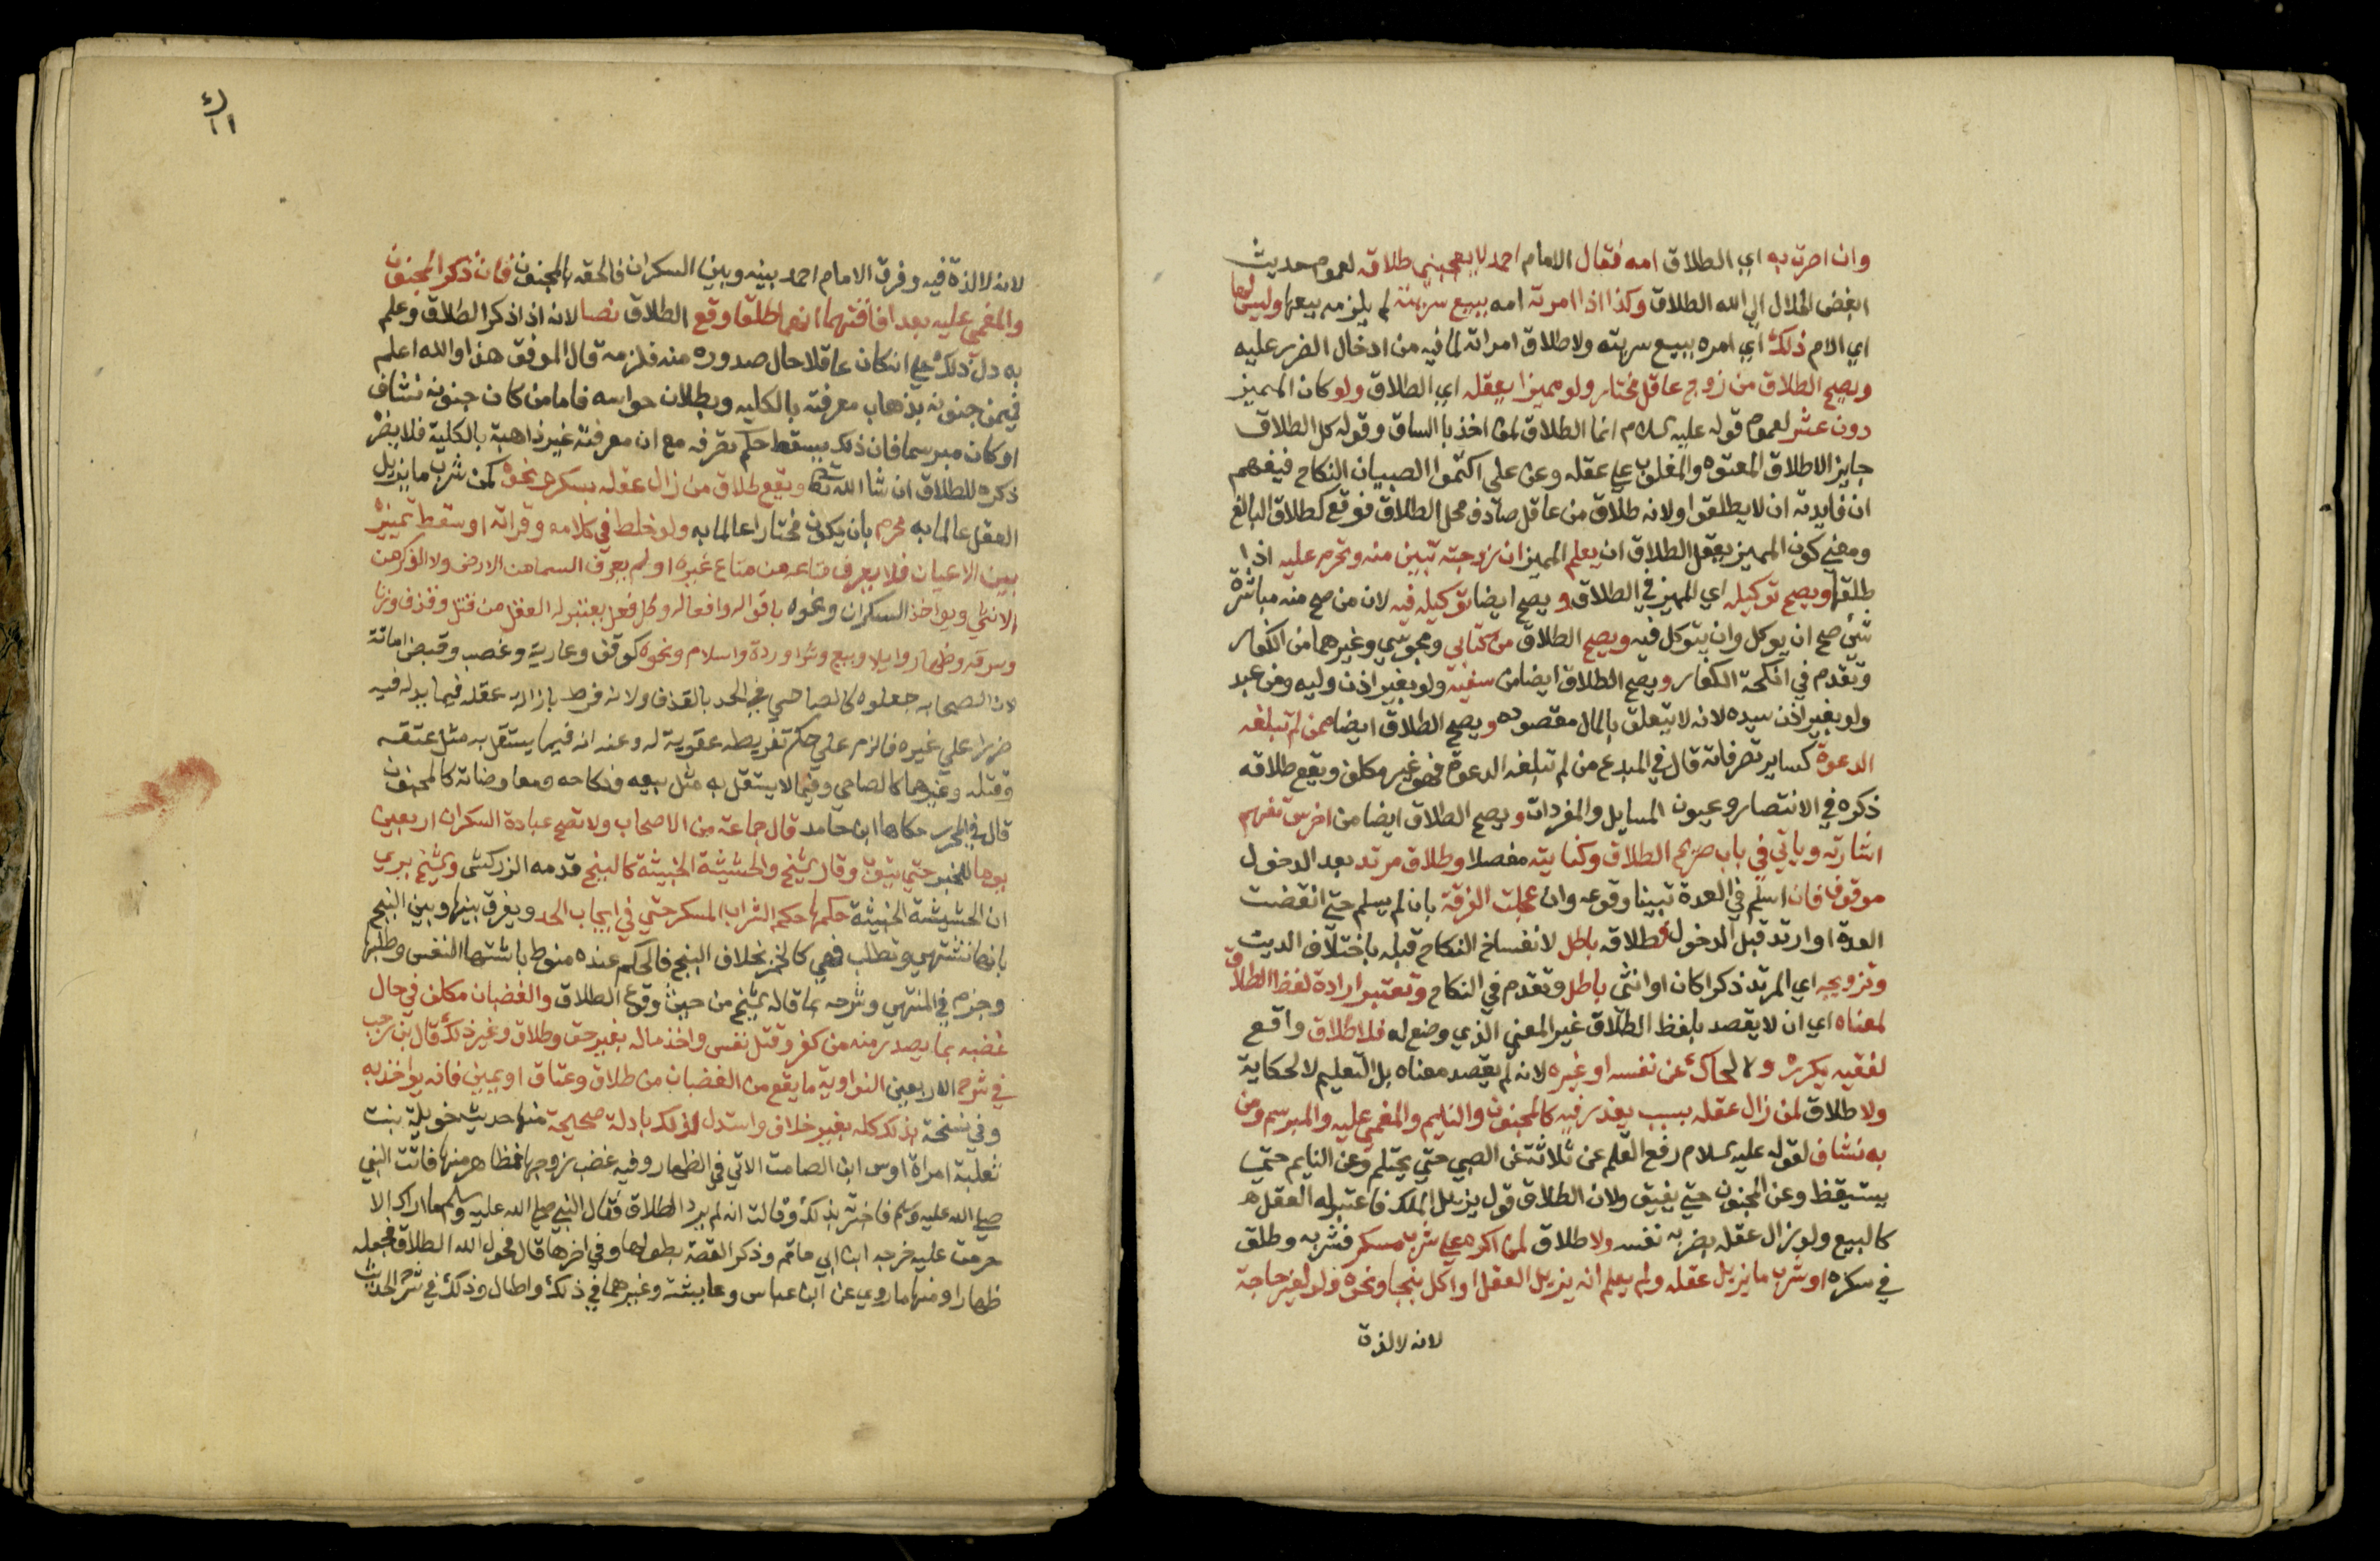 وان امرته به اي الطلاق امه فقال الامام احمد لا يعجبني طلاقه لعموم حديث
ابغض الحلال الي الله الطلاق وكذا اذا امرته امه ببيع سريته لم يلزمه بيعها وليس لها
اي الام ذلك اي امره ببيع سريته ولا طلاق امراته لما فيه من ادخال الضرر عليه
ويصح الطلاق من زوج عاقل مختار ولو مميزا يعقله اي الطلاق ولو كان المميز
دون عشر لعموم قوله عليه السلام انما الطلاق لمن اخذ بالساق وقوله كل الطلاق
جايز الا طلاق المعتوه والمغلوب علي عقله وعن علي اكتموا الصبيان النكاح فيفهم
ان فايدته ان لا يطلقوا ولانه طلاق من عاقل صادف محل الطلاق فوقع كطلاق البالغ
ومعني كون المميز يعقل الطلاق ان يعلم المميز ان زوجته تبين منه وتحرم عليه اذا
طلقها ويصح توكيله اي المميز في الطلاق ويصح ايضا توكيله فيه لان من صح منه مباشرة
شي صح ان يوكل وان يتوكل فيه ويصح الطلاق من كتابي ومجوسي وغيرهما من الكفار
وتقدم في انكحة الكفار ويصح الطلاق ايضا من سفيه ولو بغير اذن وليه ومن عبد
ولو بغير اذن سيده لانه لا يتعلق بالمال مقصوده ويصح الطلاق ايضا ممن لم تبلغه
الدعوة كساير تصرفاته قال في المبدع من لم تبلغه الدعوة فهو غير مكلف ويقع طلاقه
ذكره في الانتصار وعيون المسايل والمفردات ويصح الطلاق ايضا من اخرس تفهم
اشارته وياتي في باب صريح الطلاق وكنايته مفصلا وطلاق مرتد بعد الدخول
موقوف فان اسلم في العدة تبينا وقوعه وان عجلت الفرقة بان لم يسلم حتي انقضت
العدة او ارتد قبل الدخول فطلاقه باطل لانفساخ النكاح قبله باختلاف الدين
وتزويجه اي المرتد ذكرا كان او انثي باطل وتقدم في النكاح وتعتبر ارادة لفظ الطلاق
لمعناه اي ان لا يقصد بلفظ الطلاق غير المعني الذي وضع له فلا طلاق واقع
لفقيه يكرره ولا لحاك عن نفسه او غيره لانه لم يقصد معناه بل التعليم لا لحكاية
ولا طلاق لمن زال عقله بسبب يعذر فيه كالمجنون والنايم والمغمي عليه والمبرسم ومن
به نشاف لقوله عليه السلام رفع القلم عن ثلاثة عن الصبي حتي يحتلم وعن النايم حتي
يستيقظ وعن المجنون حتي يفيق ولان الطلاق قول يزيل الملك فاعتبر له العقل
كالبيع ولو زال عقله بضربه نفسه ولا طلاق لمن اكره علي شرب مسكر فشربه وطلق
في سكره او شرب ما يزيل عقله ولم يعلم انه يزيل العقل او اكل بنجا ونحوه ولو لغير حاجة
لانه لا لذة
لانه لا لذة فيه وفرق الامام احمد بينه وبين السكران فالحقه بالمجنون فان ذكر المجنون
والمغمي عليه بعد افاقتهما انهما طلقا وقع الطلاق نصا لانه اذا ذكر الطلاق وعلم
به دل ذلك علي انه كان عاقلا حال صدوره منه فلزمه قال الموفق هذا والله اعلم
فيمن جنونه بذهاب معرفته بالكليه وبطلان حواسه فاما من كان جنونه نشاف
او كان مبرسما فان ذلك يسقط حكم تصرفه مع ان معرفته غير ذاهبة بالكلية فلا يضر
ذكره للطلاق ان شا الله تعالي ويقع طلاق من زال عقله بسكر ونحوه كمن شرب ما يزيل
العقل عالما به محرم بان يكون مختارا عالما به ولو خلط في كلامه وقراته او سقط تمييزه
بين الاعيان فلا يعرف متاعه من متاع غيره او لم يعرف السما من الارض ولا الذكر من
الانثي ويواخذ السكران ونحوه باقواله وافعاله وكل فعل يعتبر له العقل من قتل وقذف وزنا
وسرقه وظهار وايلا وبيع وشرا وردة واسلام ونحوه كوقف وعارية وغصب وقبض امانة
لان الصحابه جعلوه كالصاحي في الحد بالقذف ولانه فرط بازالة عقله فيما يدله فيه
ضررا علي غيره فالزم علي حكم تفريطه عقوبة له وعنه انه فيما يستقل به مثل عتقه
وقتله وغيرهما كالصاحي وفيما لا يستقل به مثل بيعه ونكاحه ومعاوضاته كالمجنون
قال في المحرر حكاها ابن حامد قال جماعة من الاصحاب ولا تصح عبادة السكران اربعين
يوما للخبر حتي يتوب وقال الشيخ والحشيشة الخبيثة كالبنج قدمه الزركشي والشيخ يري
ان الحشيشة الخبيثة حكمها حكم الشراب المسكر حتي في ايجاب الحد ويفرق بينها وبين البنج
بانها تشتهي وتطلب فهي كالخمر بخلاف البنج فالحكم عنده منوط باشتها النفس وطلبها
وجزم في المنتهي وشرحه بما قاله الشيخ من حيث وقوع الطلاق والغضبان مكلف في حال
غضبه بما يصدر منه من كفر وقتل نفس واخذ ماله بغير حق وطلاق وغير ذلك قال بن رجب
في شرح الاربعين النواوية ما يقع من الغضبان من طلاق وعتاق او يمين فانه يواخذ به
وفي نسخة بذلك كله بغير خلاف واستدل لذلك بادلة صحيحة منها حديث خويلة بنت
ثعلبة امراة اوس ابن الصامت الاتي في الظهار وفيه غضب زوجها فظاهر منها فاتت النبي
صلي الله عليه وسلم فاخبرته بذلك وقالت انه لم يرد الطلاق فقال النبي صلي الله عليه وسلم ما اراك الا
حرمت عليه خرجه ابن ابي حاتم وذكر القصة بطولها وفي اخرها قال فحول الله الطلاق فجعله
ظهارا ومنها ما روي عن ابن عباس وعايشة وغيرهما في ذلك واطال وذلك في شرح الحديث